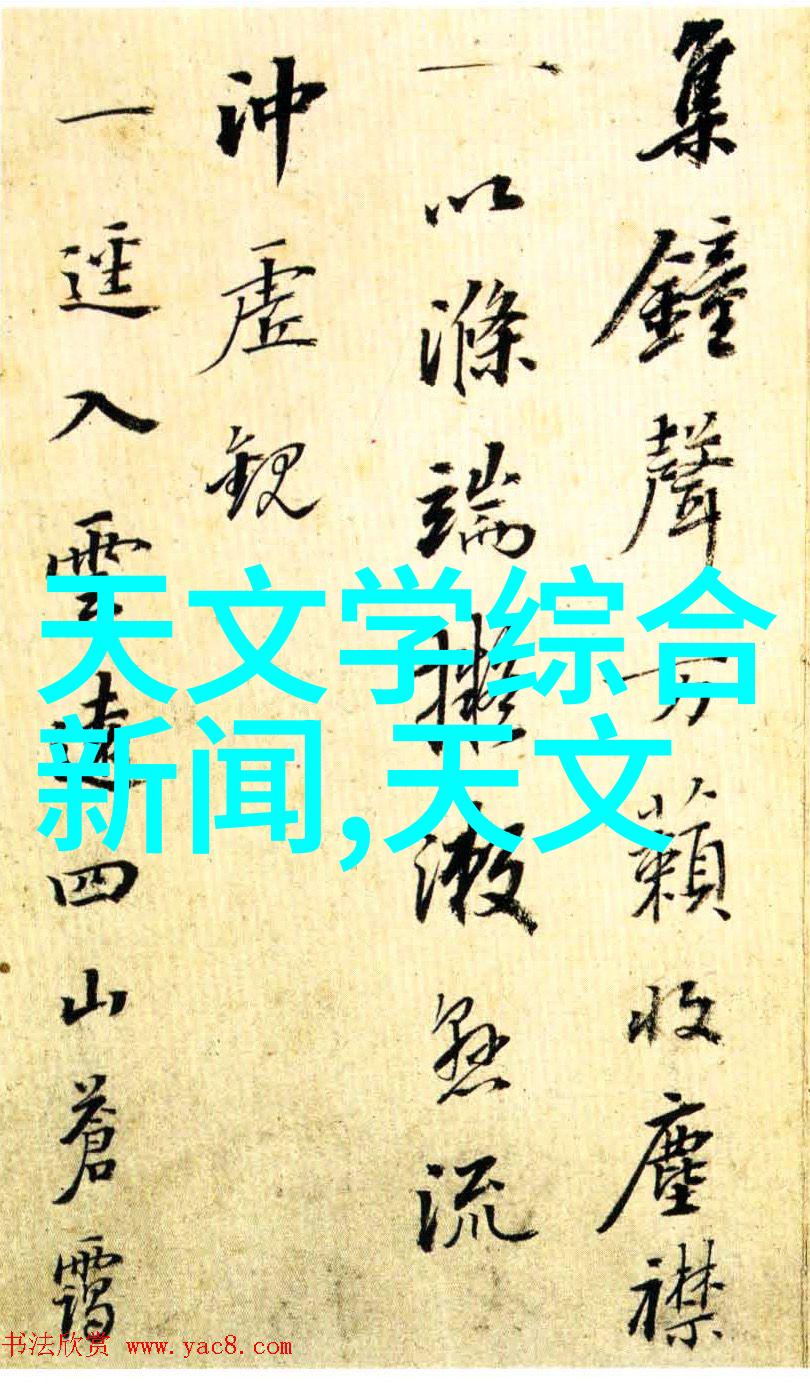 集鐘聲万藾收塵襟
一以滌端擬漱懸流
沖虛觀
一逕入雲遠四山蒼靄
天文学综合
新闻,天文
书法欣赏 www.yac8.com